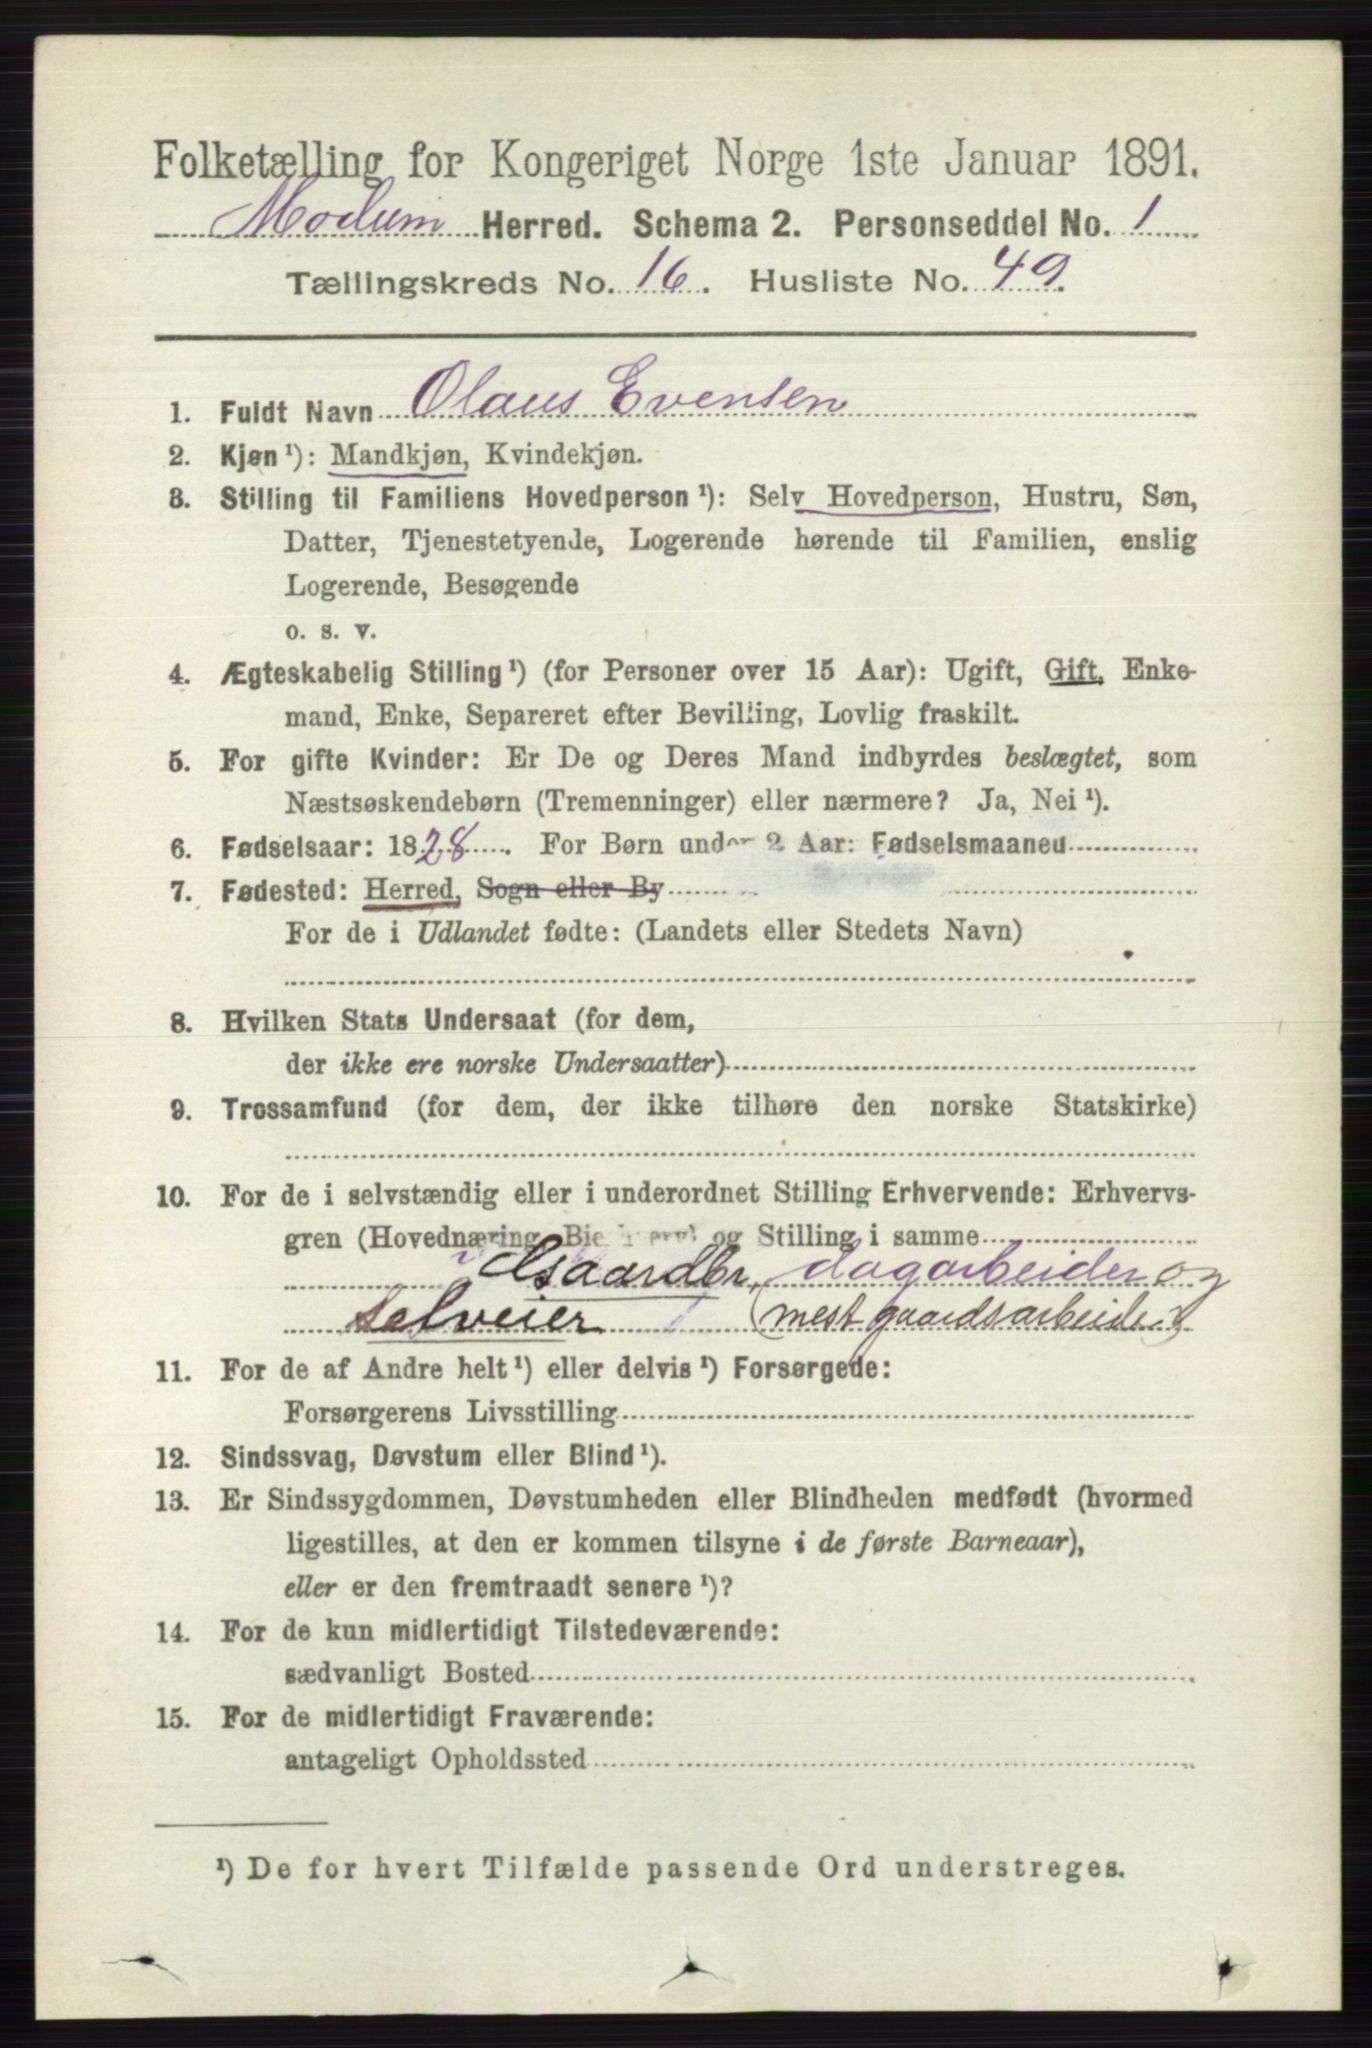 Folketælling for Kongeriget Norge 1ste Januar 1891.
Modum Herred. Schema 2. Personseddel No. 1
Tællingskreds No. 16. Husliste No. 49.
1. Fuldt Navn Olaus Evensen
2. Kjøn ¹): Mandkjøn, Kvindekjøn.
3. Stilling til Familiens Hovedperson ¹): Selv Hovedperson, Hustru, Søn,
Datter, Tjenestetyende, Logerende hørende til Familien, enslig
Logerende, Besøgende
o. s. v.
4. Ægteskabelig Stilling ¹) (for Personer over 15 Aar): Ugift, Gift, Enke-
mand, Enke, Separeret efter Bevilling, Lovlig fraskilt.
5. For gifte Kvinder: Er De og Deres Mand indbyrdes beslægtet, som
Næstsøskendebørn (Tremenninger) eller nærmere? Ja, Nei ¹).
6. Fødselsaar: 1828. For Børn under 2 Aar: Fødselsmaaned
7. Fødested: Herred, Sogn eller By
For de i Udlandet fødte: (Landets eller Stedets Navn)
8. Hvilken Stats Undersaat (for dem,
der ikke ere norske Undersaatter)
9. Trossamfund (for dem, der ikke tilhøre den norske Statskirke)
10. For de i selvstændig eller i underordnet Stilling Erhvervende: Erhvervs-
gren (Hovednæring, Bierhverv) og Stilling i samme
Gaardbr. dagarbeider og
selveier (mest gaardsarbeide)
11. For de af Andre helt ¹) eller delvis ¹) Forsørgede:
Forsørgerens Livsstilling
12. Sindssvag, Døvstum eller Blind ¹).
13. Er Sindssygdommen, Døvstumheden eller Blindheden medfødt (hvormed
ligestilles, at den er kommen tilsyne i de første Barneaar),
eller er den fremtraadt senere ¹)?
14. For de kun midlertidigt Tilstedeværende:
sædvanligt Bosted
15. For de midlertidigt Fraværende:
antageligt Opholdssted
¹) De for hvert Tilfælde passende Ord understreges.